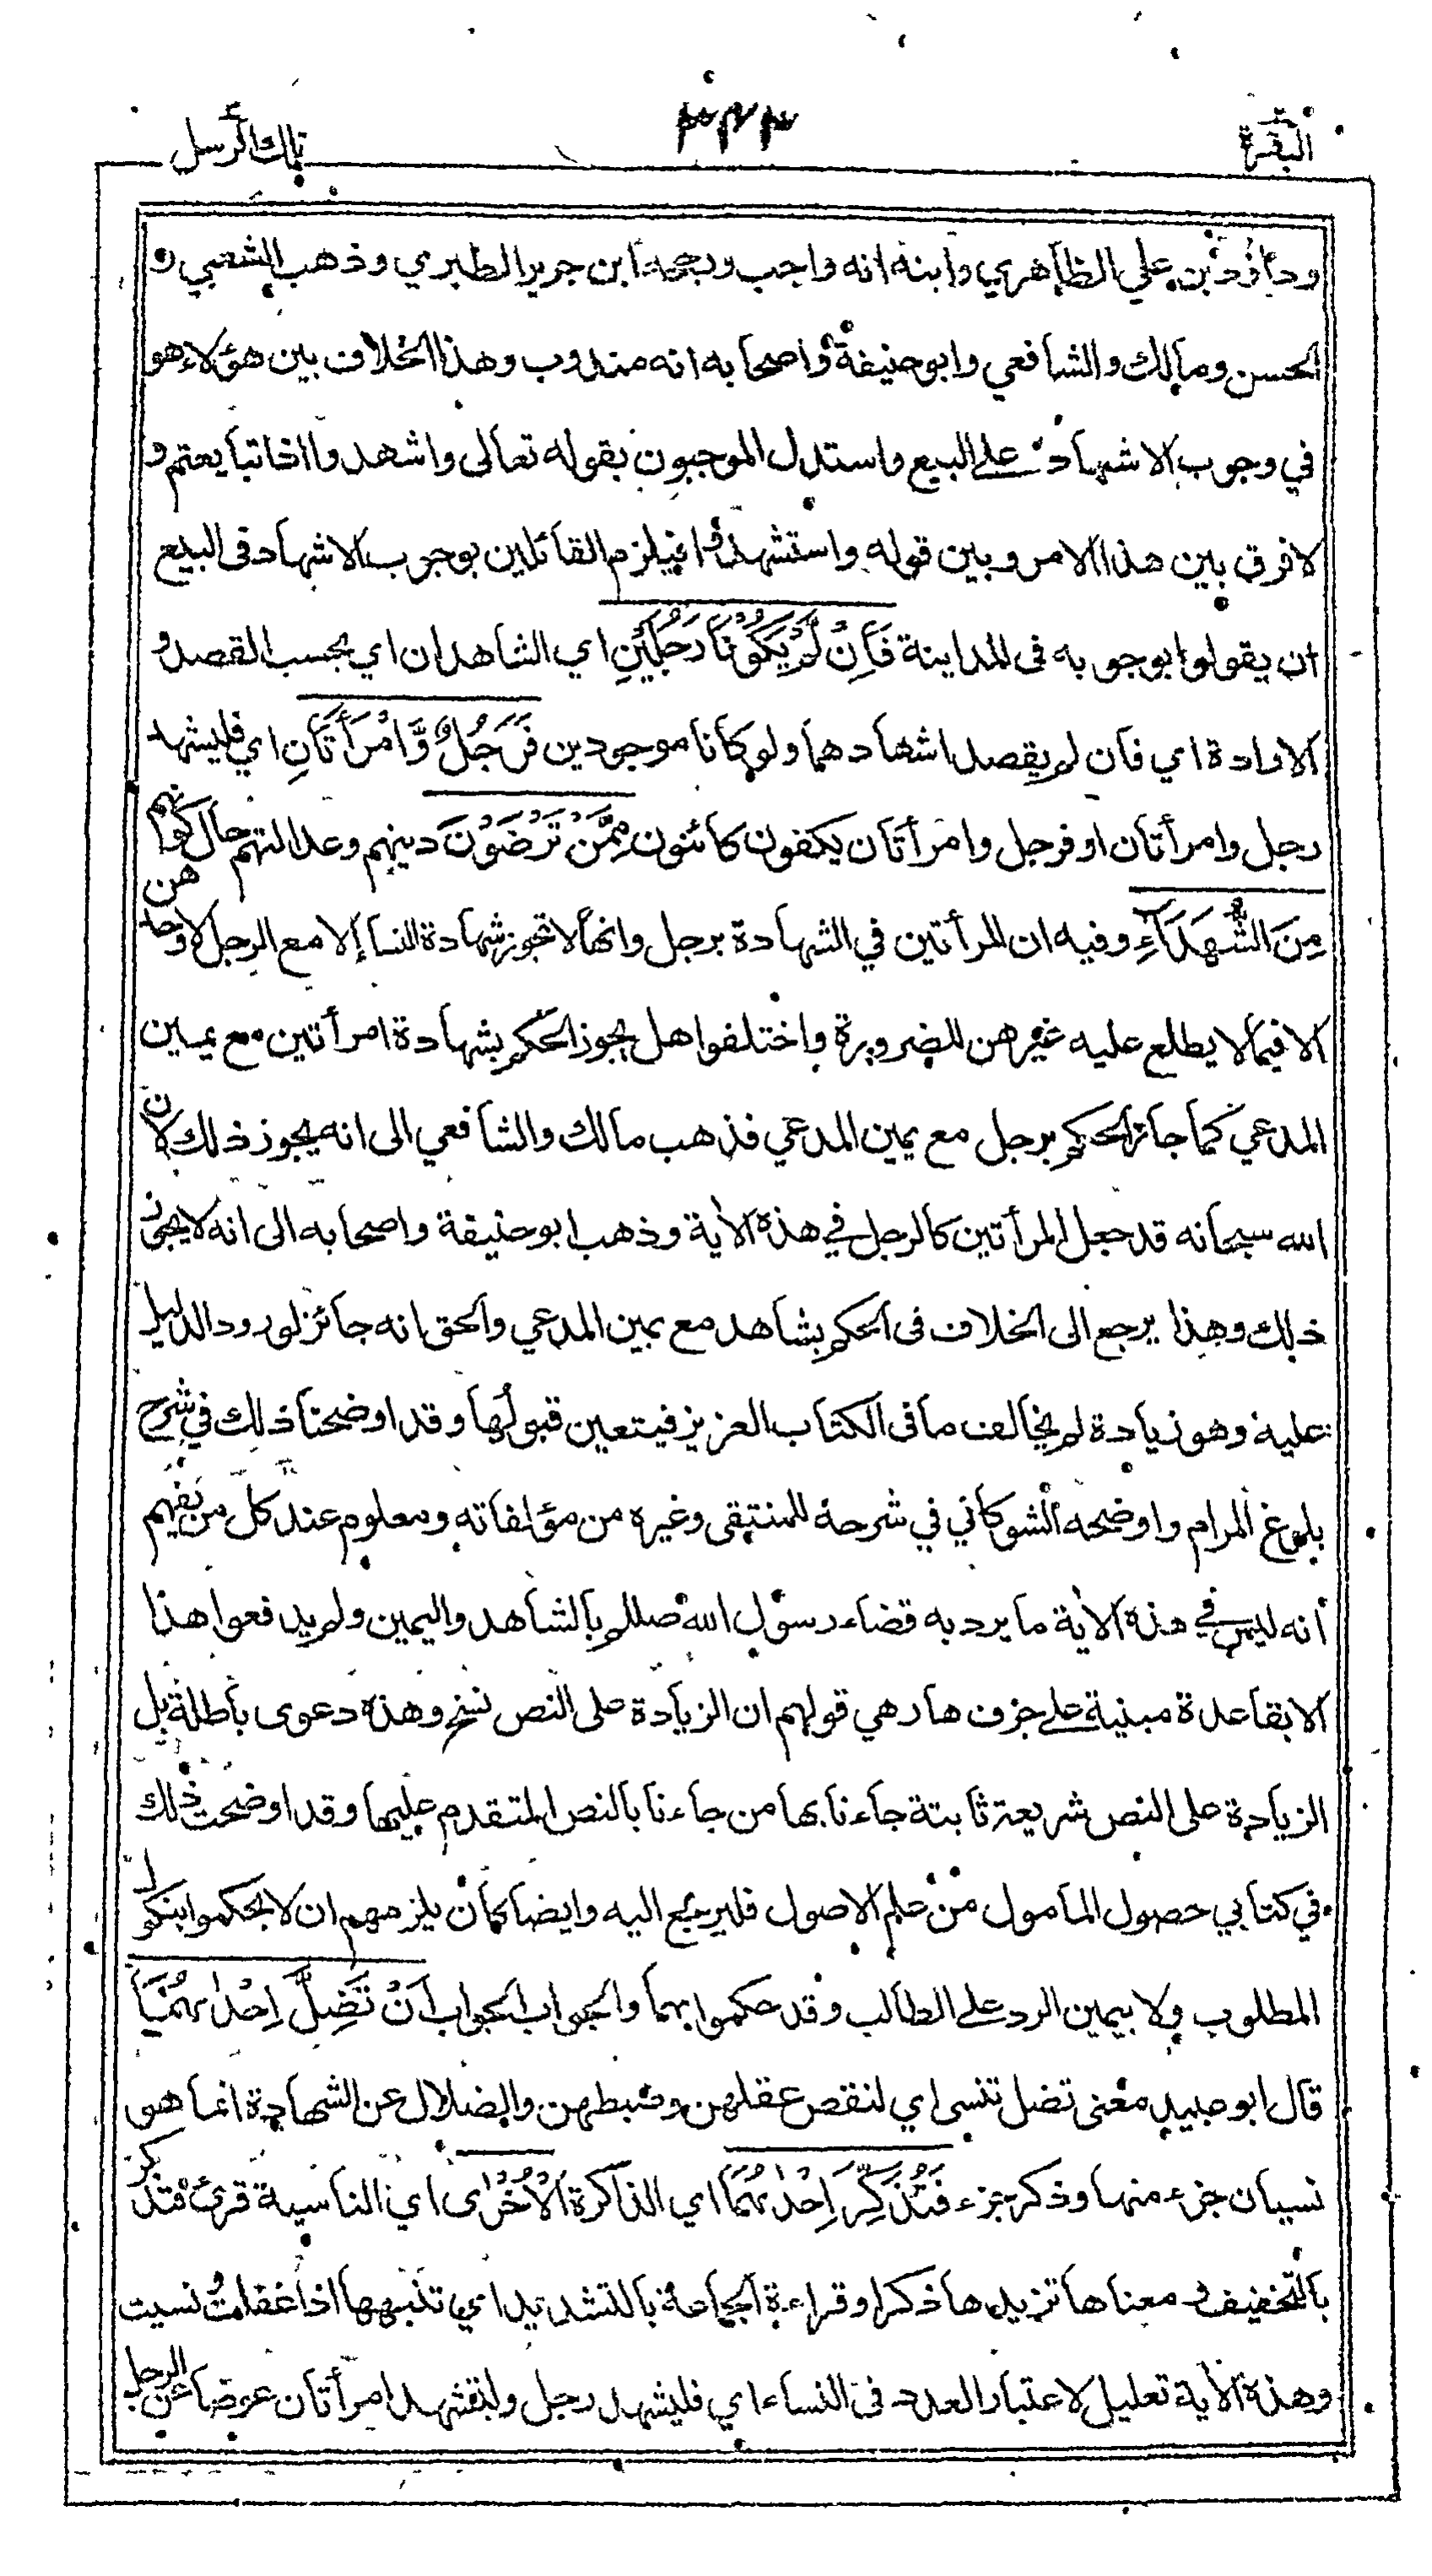 البقرة
٣٤٣
تلك الرسل
وداؤد بن علي الظاهري وابنه انه واجب ورجحه ابن جرير الطبري وذهب الشعبي و
الحسن ومالك والشافعي وابو حنيفة واصحابه انه مندوب وهذا الخلاف بين هؤلاء هو
في وجوب الاشهاد على البيع واستدل الموجبون بقوله تعالى واشهدوا اذا تبايعتم و
لا فرق بين هذا الامر وبين قوله واستشهدوا فيلزم القائلين بوجوب الاشهاد فى البيع
ان يقولوا بوجوبه فى المداينة فَاِنْ لَّمْ يَكُوْنَا رَجُلَيْنِ اي الشاهدان اي بحسب القصد و
الارادة اي فان لم يقصد اشهادهما ولو كانا موجودين فَرَجُلٌ وَّامْرَأَتَانِ اي فليشهد
رجل وامرأتان او فرجل وامرأتان يكفون كائنون مِمَّنْ تَرْضَوْنَ دينهم وعدالتهم حال كونهم
مِنَ الشُّهَدَآءِ وفيه ان المرأتين في الشهادة برجل وانها لا تجوز شهادة النساء إلا مع الرجل لا وحدهن
الا فيما لا يطلع عليه غيرهن للضرورة واختلفوا هل يجوز الحكم بشهادة امرأتين مع يمين
المدعي كما جاز الحكم برجل مع يمين المدعي فذهب مالك والشافعي الى انه يجوز ذلك لان
الله سبحانه قد جعل المرأتين كالرجل في هذه الأية وذهب ابو حنيفة واصحابه الى انه لا يجوز
ذلك وهذا يرجع الى الخلاف فى الحكم بشاهد مع يمين المدعي والحق انه جائز لورود الدليل
عليه وهو زيادة لم يخالف ما فى الكتاب العزيز فيتعين قبولها وقد اوضحنا ذلك في شرح
بلوغ المرام واوضحه الشوكاني في شرحه للمنتقى وغيره من مؤلفاته ومعلوم عند كل من يفهم
انه ليس في هذه الأية ما يرد به قضاء رسول الله صللم بالشاهد واليمين ولم يدفعوا هذا
الا بقاعدة مبنية على جرف هار هي قولهم ان الزيادة على النص نسخ وهذه دعوى باطلة بل
الزيادة على النص شريعة ثابتة جاءنا بها من جاءنا بالنص المتقدم عليها وقد اوضحت ذلك
في كتابي حصول المأمول من علم الاصول فليرجع اليه وايضا كان يلزمهم ان لا يحكموا بنكول
المطلوب ولا بيمين الرد على الطالب وقد حكموا بهما والجواب الجواب اَنْ تَضِلَّ اِحْدٰىهُمَا
قال ابو عبيد معنى تضل تنسى اي لنقص عقلهن وضبطهن والضلال عن الشهادة انما هو
نسيان جزء منها وذكر جزء فَتُذَكِّرَ اِحْدٰىهُمَا اي الذاكرة الْاُخْرٰى اي الناسية قرئ فتذكر
بالتخفيف ومعناها تزيدها ذكرا وقراءة الجماعة بالتشديد اي تنبهها اذا غفلت ونسيت
وهذه الأية تعليل لاعتبار العدد فى النساء اي فليشهد رجل ولتشهد امرأتان عوضا عن الرجل